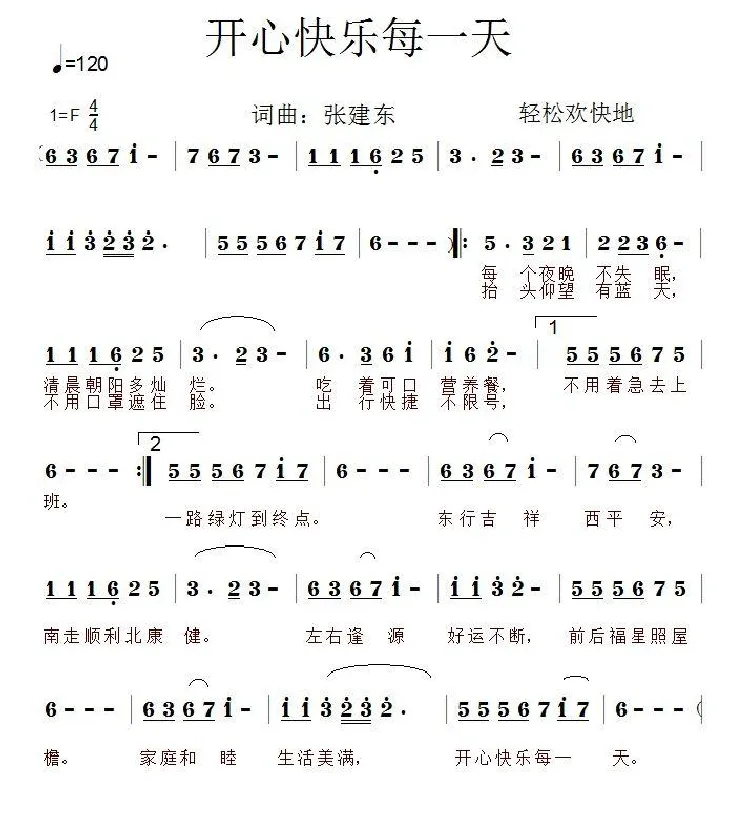 开心快乐每一天
♩=120
1=F 4/4 词曲：张建东 轻松欢快地
(6 3 6 7 i - | 7 6 7 3 - | 1 1 1 6̣ 2 5 | 3 . 2 3 - | 6 3 6 7 i - |
i i 3̇ 2̇ 3̇ 2̇ . | 5 5 5 6 7 i 7 | 6 - - - ) ‖: 5 . 3 2 1 | 2 2 3 6̣ - |
每 个夜晚 不失 眠，
抬 头仰望 有蓝 天，
1 1 1 6̣ 2 5 | 3 . 2 3 - | 6 . 3 6 i | i 6 2̇ - | 1 5 5 5 6 7 5 |
清晨朝阳多灿 烂。 吃 着可口 营养餐， 不用着急去上
不用口罩遮住 脸。 出 行快捷 不限号，
6 - - - :‖ 2 5 5 5 6 7 i 7 | 6 - - - | 6 3 6 7 i - | 7 6 7 3 - |
班。 一路绿灯到终点。 东行吉 祥 西平 安，
1 1 1 6̣ 2 5 | 3 . 2 3 - | 6 3 6 7 i - | i i 3̇ 2̇ - | 5 5 5 6 7 5 |
南走顺利北康 健。 左右逢 源 好运不断， 前后福星照屋
6 - - - | 6 3 6 7 i - | i i 3̇ 2̇ 3̇ 2̇ . | 5 5 5 6 7 i 7 | 6 - - - (
檐。 家庭和 睦 生活美满， 开心快乐每一 天。